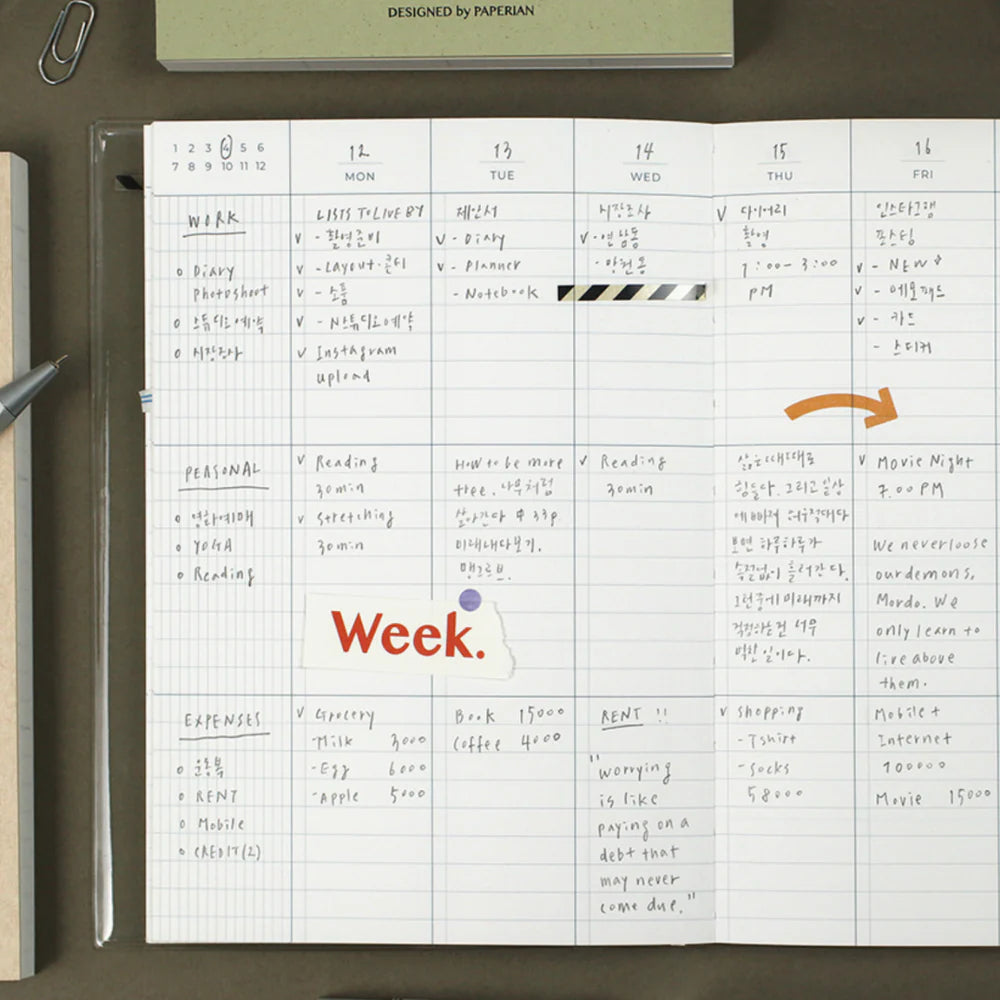 DESIGNED by PAPERIAN
1 2 3 4 5 6
7 8 9 10 11 12
12
MON
13
TUE
14
WED
15
THU
16
FRI
WORK
o Diary
Photoshoot
o 스튜디오예약
o 시장조사
LISTS TO LIVE BY
v -촬영준비
v - Layout·콘티
v - 소품
v - 스튜디오예약
v Instagram
upload
제안서
v - Diary
v - Planner
- Notebook
시장조사
v - 연남동
v 다이어리
촬영
1:00 - 3:00
PM
인스타그램
포스팅
v - NEW
v - 메모패드
v - 카드
- 스티커
PERSONAL
• 영화예매
• YOGA
• Reading
v Reading
30min
v Stretching
30min
How to be more
tree. 나무처럼
살아간다 33p
미래내다보기.
맹그로브.
v Reading
30min
삶은 때때로
힘들다. 그리고 일상
에 빠져 허우적대다
보면 하루하루가
속절없이 흘러간다.
그런중에 미래까지
걱정하는건 너무
벅찬 일이다.
v Movie Night
7.00 PM
We never loose
our demons,
Mordo. We
only learn to
live above
them.
Week.
EXPENSES
o 운동복
o RENT
o Mobile
o CREDIT(2)
v Grocery
- Milk 3000
- Egg 6000
- Apple 5000
Book 15000
Coffee 4000
RENT !!
"worrying
is like
paying on a
debt that
may never
come due."
v Shopping
- Tshirt
- socks
58000
Mobile +
Internet
100000
Movie 15000